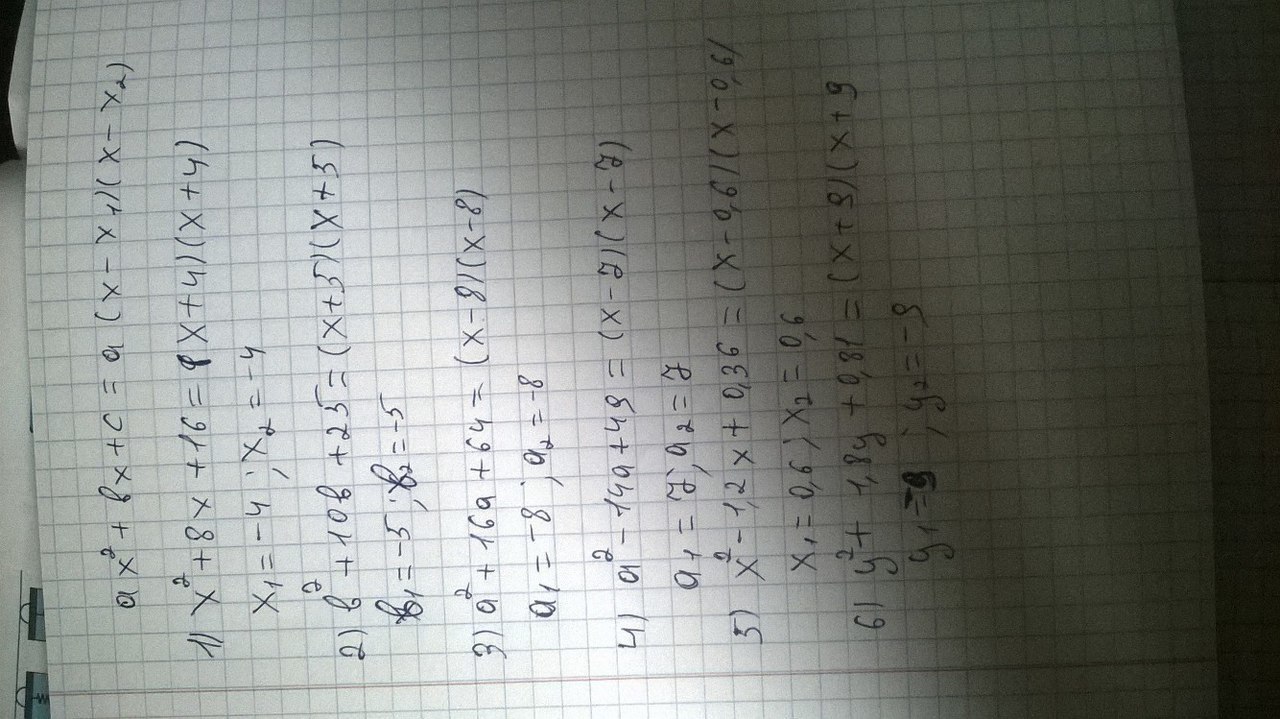 ax² + вx + c = a(x - x₁)(x - x₂)
1) x² + 8x + 16 = (x + 4)(x + 4)
x₁ = -4 ; x₂ = -4
2) в² + 10в + 25 = (x + 5)(x + 5)
в₁ = -5 ; в₂ = -5
3) a² + 16a + 64 = (x - 8)(x - 8)
a₁ = -8 ; a₂ = -8
4) a² - 14a + 49 = (x - 7)(x - 7)
a₁ = 7 ; a₂ = 7
5) x² - 1,2x + 0,36 = (x - 0,6)(x - 0,6)
x₁ = 0,6 ; x₂ = 0,6
6) y² + 1,8y + 0,81 = (x + 9)(x + 9
y₁ = -9 ; y₂ = -9